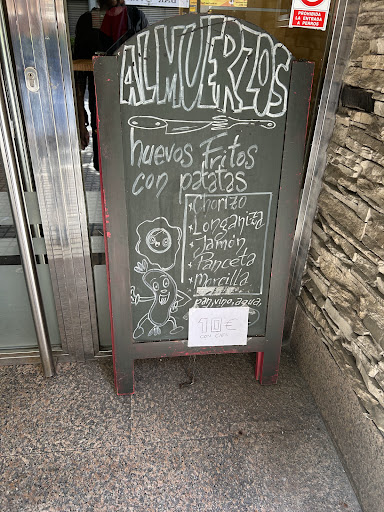 PROHIBIDA
LA ENTRADA
A PERROS
ALMUERZOS
huevos Fritos
con patatas
• Chorizo
• Longaniza
• Jamón
• Panceta
• Morcilla
pan, vino, agua
10€